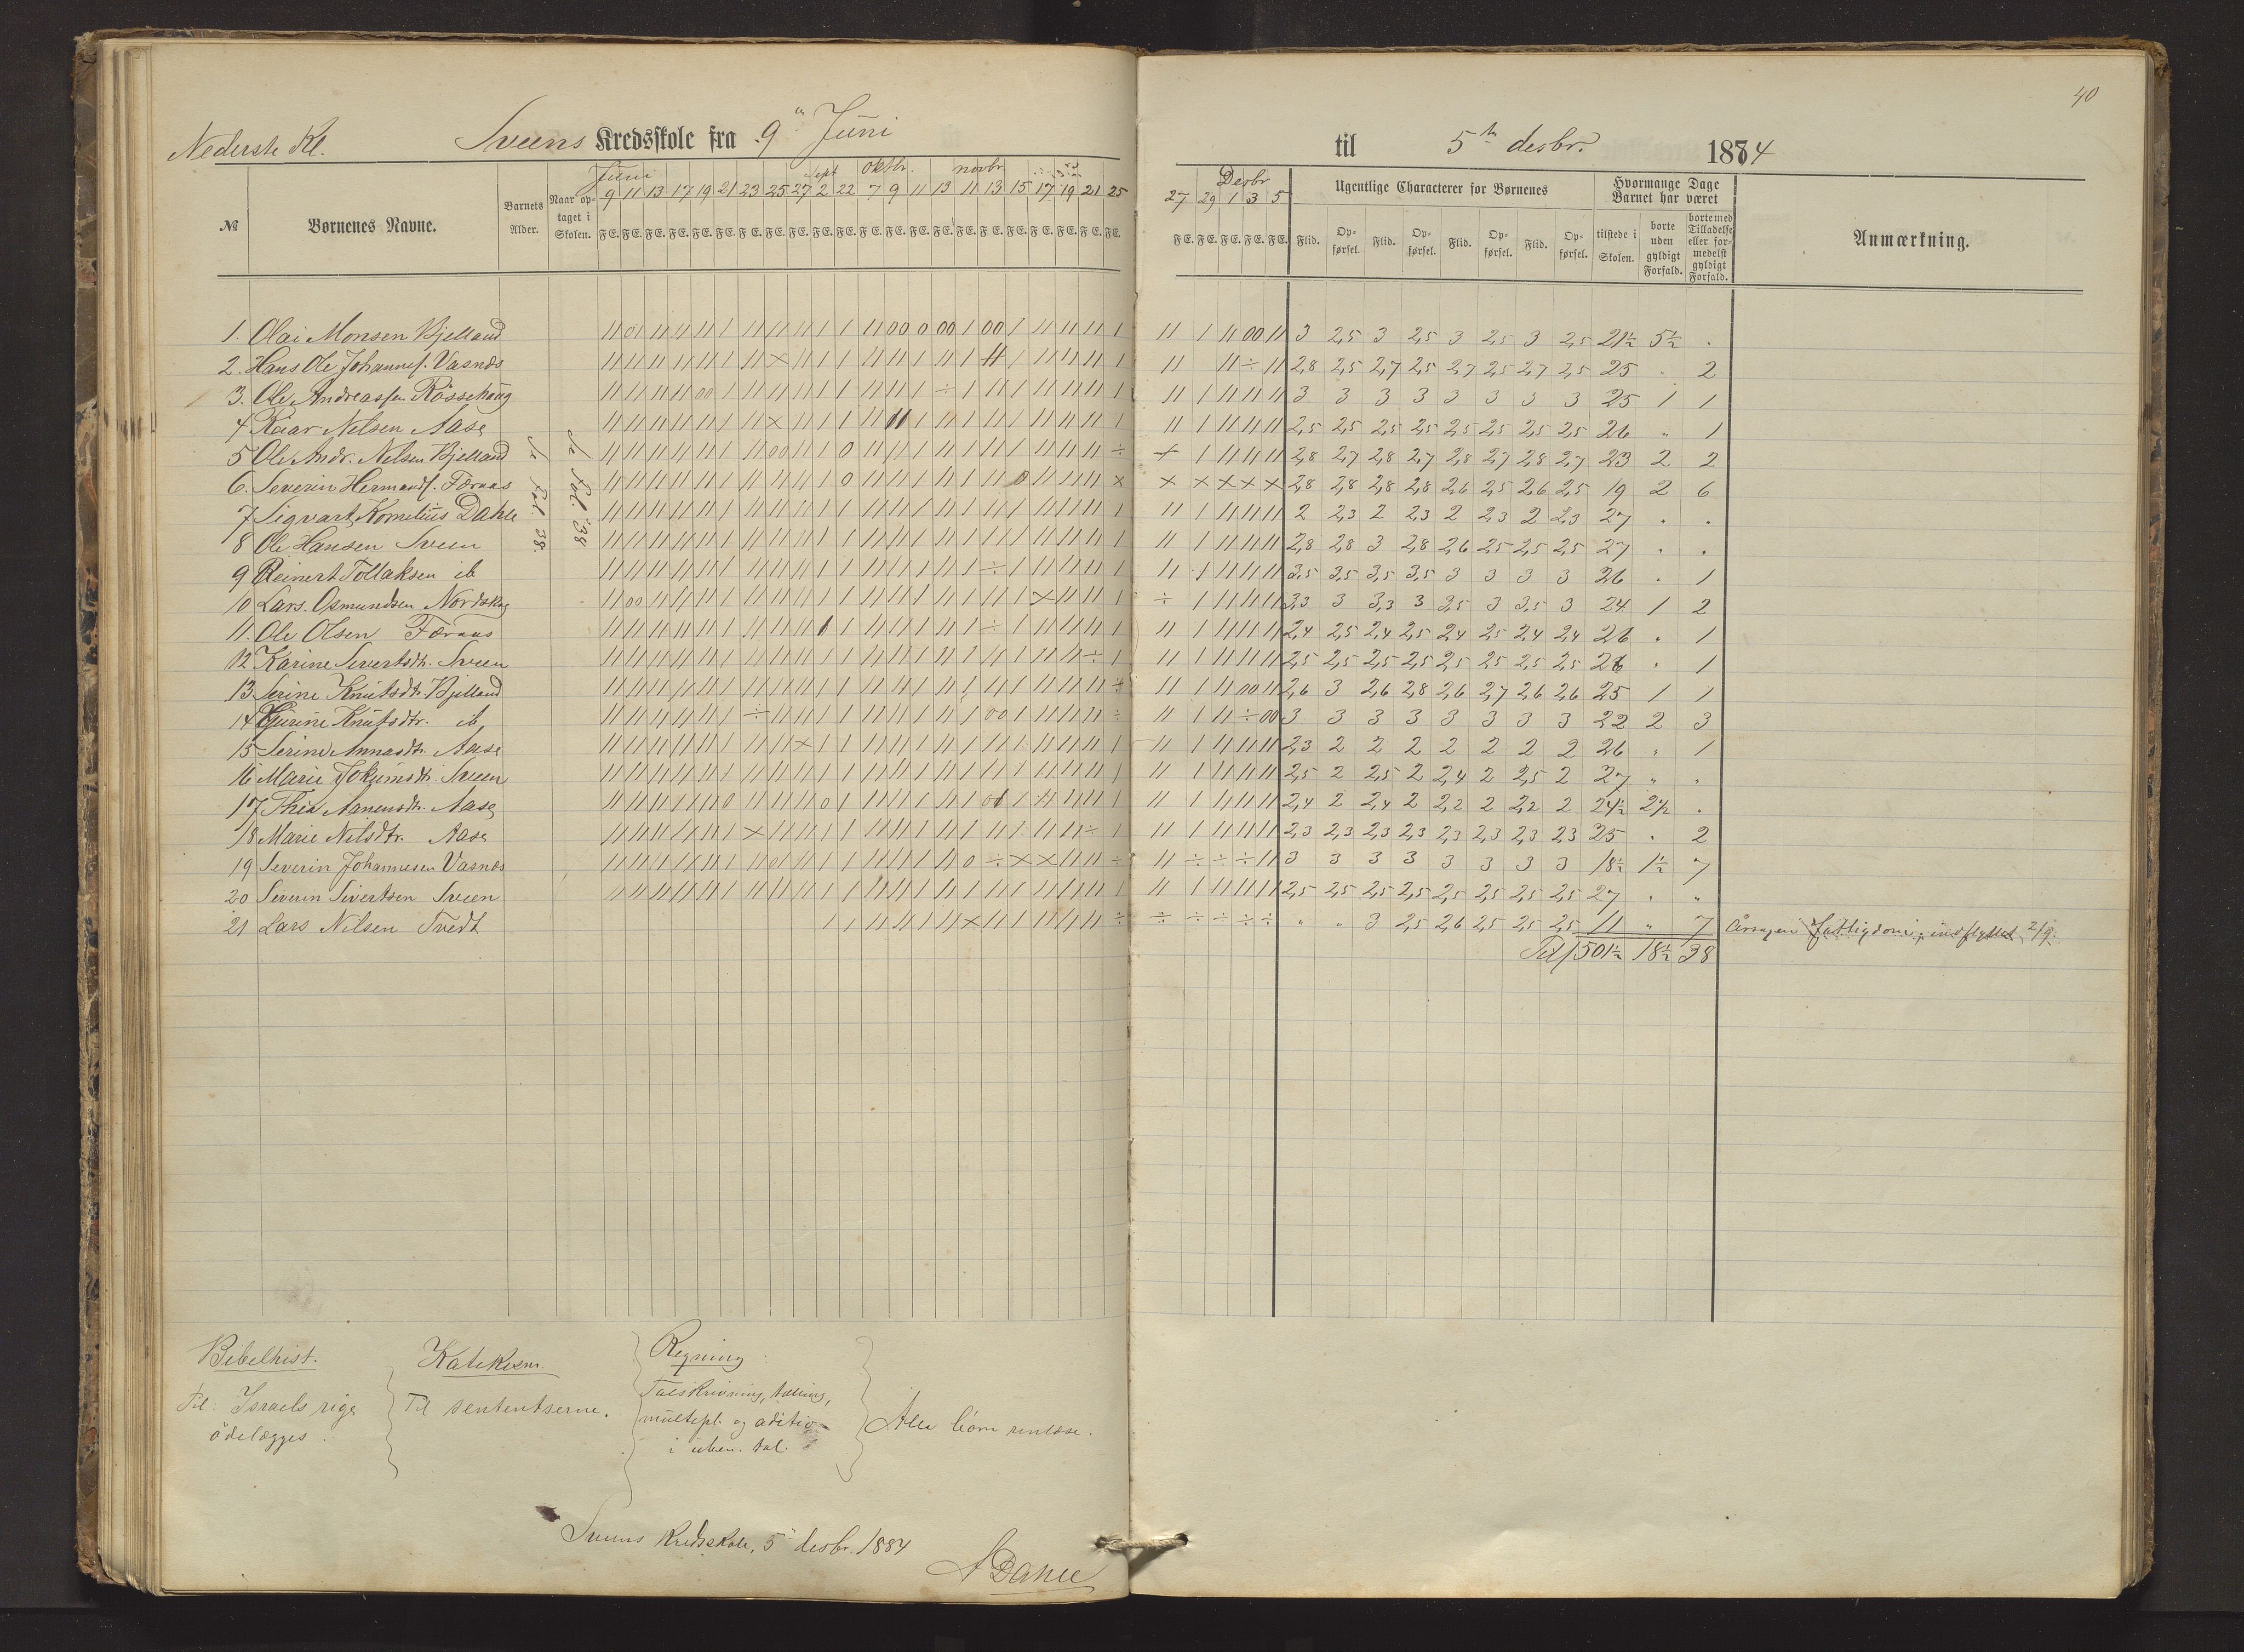 40
Nederste Kl. Sveens Kredsskole fra 9de Juni til 5te desbr. 1884
Juni Sept oktbr. novbr. Desbr
№ Børnenes Navne. Barnets Alder. Naar optaget i Skolen. 9 11 13 17 19 21 23 25 27 2 22 7 9 11 13 11 13 15 17 19 21 25 27 29 1 3 5
Ugentlige Characterer for Børnenes Hvormange Dage Barnet har været Anmærkning.
F E. F E. F E. F E. F E. F E. F E. F E. F E. F E. F E. F E. F E. F E. F E. F E. F E. F E. F E. F E. F E. F E. F E. F E. F E. F E. F E. Flid. Opførsel. Flid. Opførsel. Flid. Opførsel. Flid. Opførsel. tilstede i Skolen. borte uden gyldigt Forfald. borte med Tilladelse eller formedelst gyldigt Forfald.
Se Fol. 38.
Se Fol. 38
1. Olai Monsen Bjelland 3 2,5 3 2,5 3 2,5 3 2,5 21½ 5½ .
2. Hans Ole Johannes. Vasnes 2,8 2,5 2,7 2,5 2,7 2,5 2,7 2,5 25 . 2
3. Ole Andreassen Røssehaug 3 3 3 3 3 3 3 3 25 1 1
4 Kaar Nelsen Aase 2,5 2,5 2,5 2,5 2,5 2,5 2,5 2,5 26 " 1
5 Ole Andr. Nelsen Bjelland 2,8 2,7 2,8 2,7 2,8 2,7 2,8 2,7 23 2 2
6. Severin Hermands. Færaas 2,8 2,8 2,8 2,8 2,6 2,5 2,6 2,5 19 2 6
7 Sigvart Kornelius Dahle 2 2,3 2 2,3 2 2,3 2 2,3 27 . .
8 Ole Hansen Sveen 2,8 2,8 3 2,8 2,6 2,5 2,5 2,5 27 . .
9 Reinert Tollaksen ib 3,5 3,5 3,5 3,5 3 3 3 3 26 . 1
10 Lars. Osmundsen Nordskog 3,3 3 3,3 3 3,5 3 3,5 3 24 1 2
11. Ole Olsen Færaas 2,4 2,5 2,4 2,5 2,4 2,5 2,4 2,4 26 . 1
12 Karine Sivertsdtr. Sveen 2,5 2,5 2,5 2,5 2,5 2,5 2,5 2,5 26 . 1
13 Serine Knutsdtr. Bjelland 2,6 3 2,6 2,8 2,6 2,7 2,6 2,6 25 1 1
14 Gurine Knutsdtr. ib 3 3 3 3 3 3 3 3 22 2 3
15 Serine Annasdtr. Aase 2,3 2 2 2 2 2 2 2 26 . 1
16 Marie Jokumsdtr. Sveen 2,5 2 2,5 2 2,4 2 2,5 2 27 " "
17 Thea Aanensdtr. Aase 2,4 2 2,4 2 2,2 2 2,2 2 24½ 2½ .
18 Marie Nilsdtr. Aase 2,3 2,3 2,3 2,3 2,3 2,3 2,3 2,3 25 . 2
19 Severin Johannesen Vasnes 3 3 3 3 3 3 3 3 18½ 1½ 7
20 Severin Sivertsen Sveen 2,5 2,5 2,5 2,5 2,5 2,5 2,5 2,5 27 . "
21 Lars Nilsen Tvedt " " 3 2,5 2,6 2,5 2,5 2,5 11 " 7 Årsagen fattigdom, indflyttet 2/9.
Til 501½ 18½ 38
Bibelhist. Katekism. Regning
Til: Israels rige ødelægges.
Til sententserne.
Talskrivning, tælling,
multipl. og aditio
i uben. tal.
Alle børn renlæse.
Sveens Kredsskole, 5te desbr. 1884
A Dahle